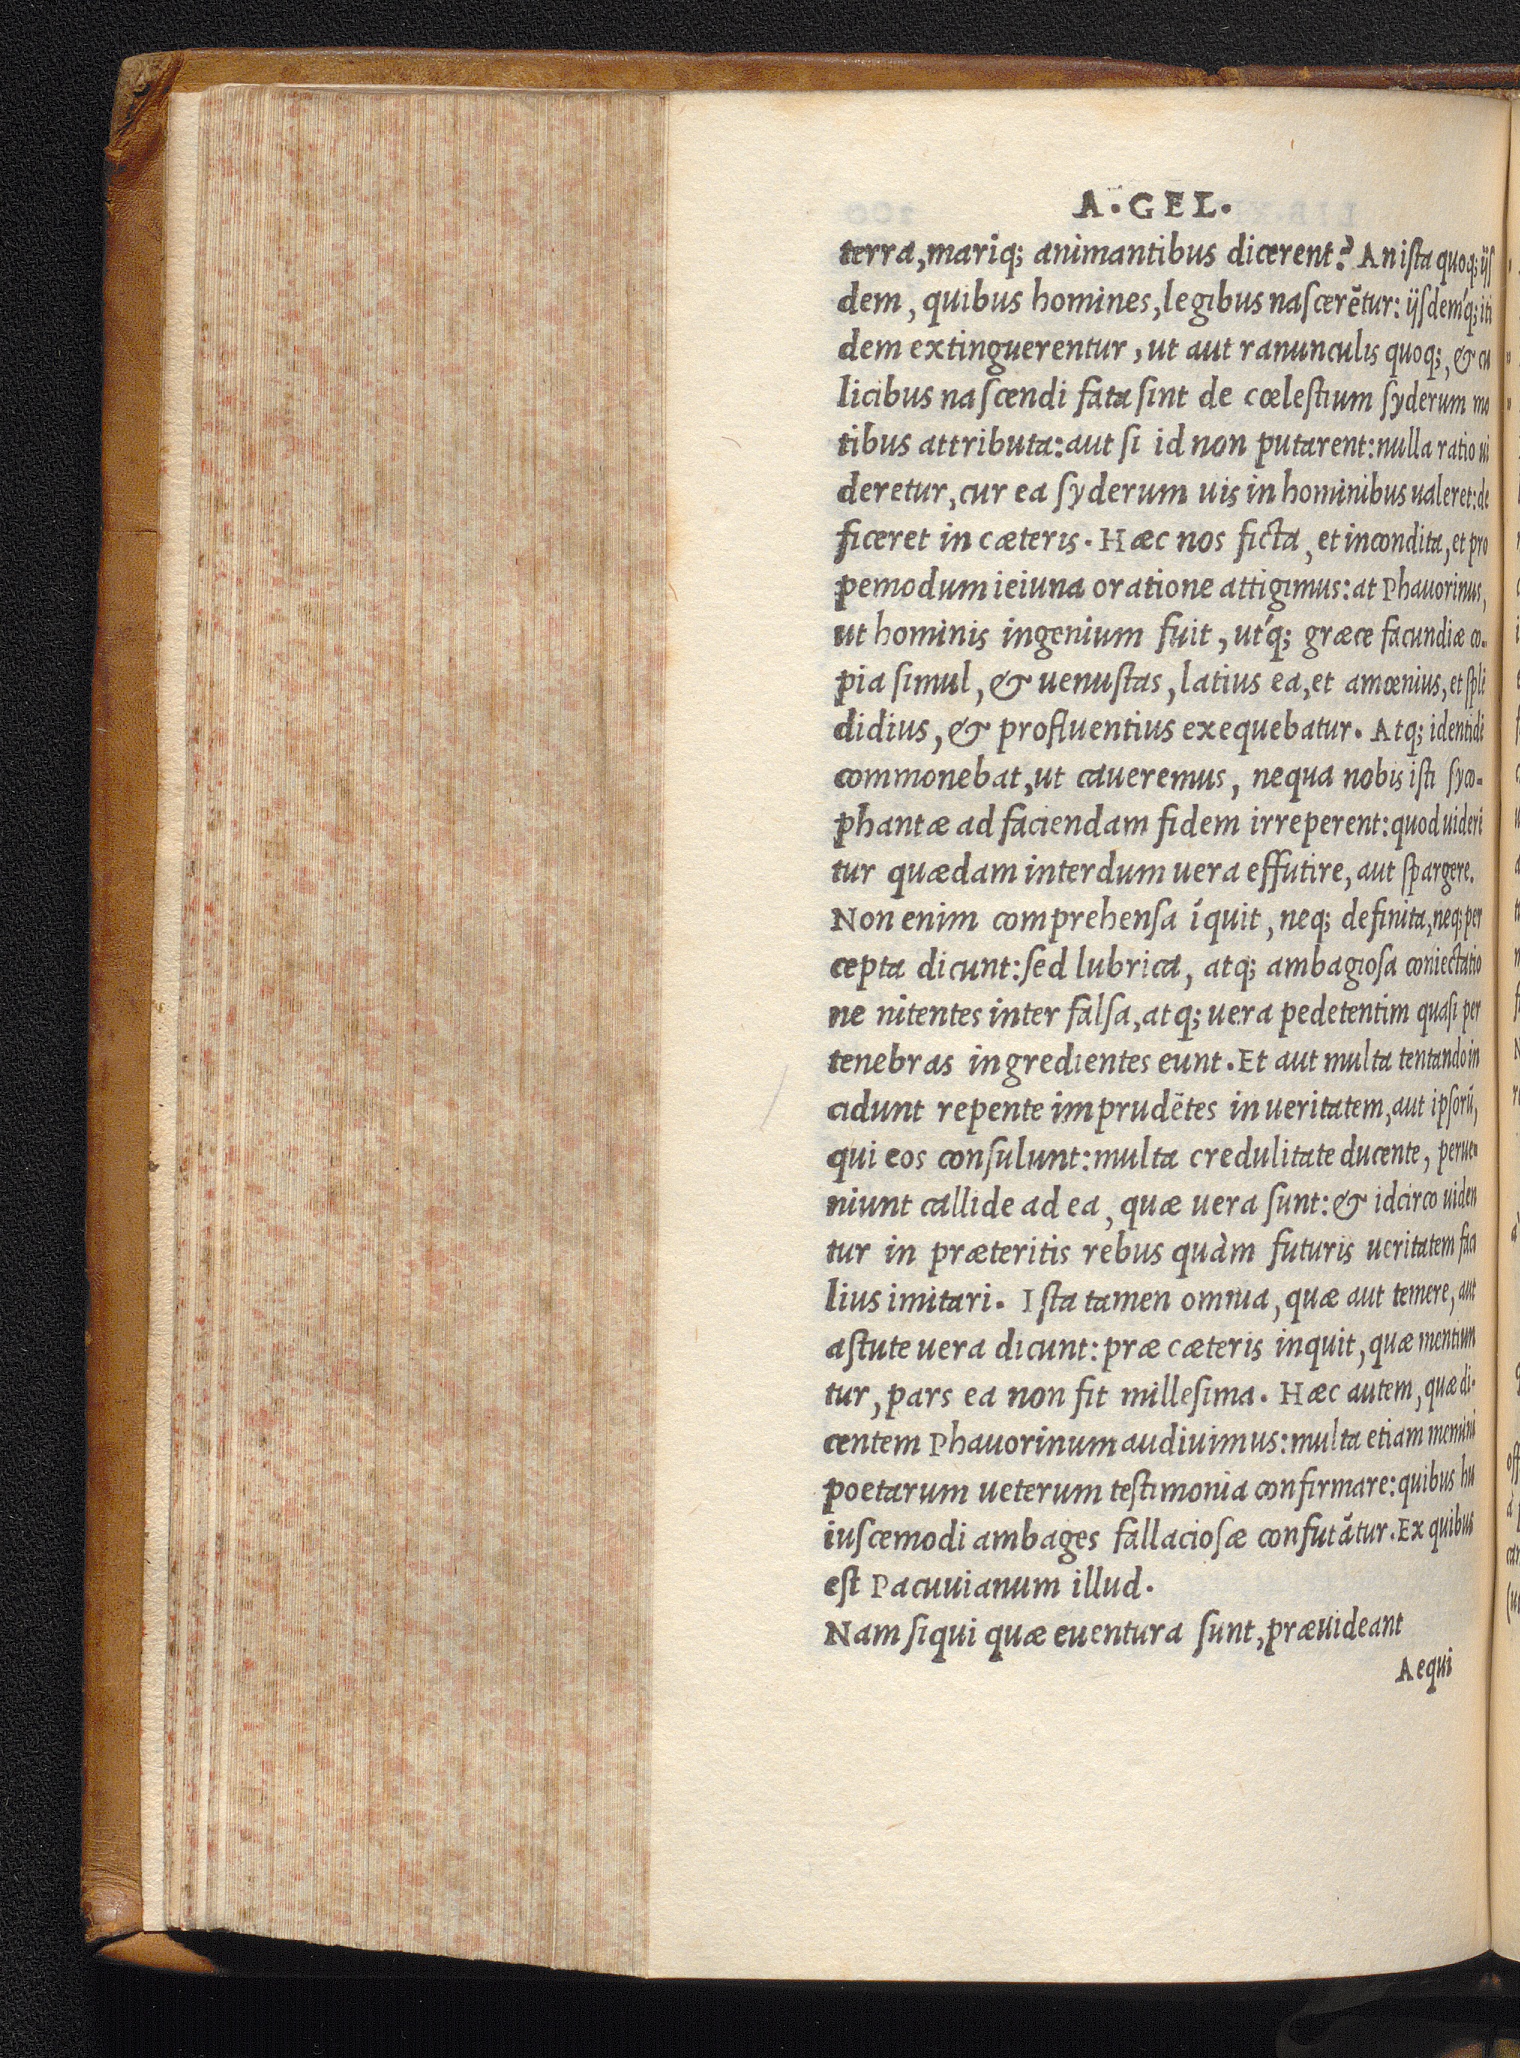 A·GEL·
terra, mariq; animantibus dicerent? An ista quoq; ijs
dem, quibus homines, legibus nascerētur: ijsdemq́; iti
dem extinguerentur, ut aut ranunculis quoq;, & cu
licibus nascendi fata sint de cœlestium syderum mo
tibus attributa: aut si id non putarent: nulla ratio ui
deretur, cur ea syderum uis in hominibus ualeret: de
ficeret in cæteris. Hæc nos ficta, et incondita, et pro
pemodum ieiuna oratione attigimus: at Phauorinus,
ut hominis ingenium fuit, utq́; græce facundiæ co-
pia simul, & uenustas, latius ea, et amœnius, et splē
didius, & profluentius exequebatur. Atq; identidē
commonebat, ut caueremus, nequa nobis isti syco-
phantæ ad faciendam fidem irreperent: quod uideren
tur quædam interdum uera effutire, aut spargere.
Non enim comprehensa īquit, neq; definita, neq; per
cepta dicunt: sed lubrica, atq; ambagiosa coniectatio
ne nitentes inter falsa, atq; uera pedetentim quasi per
tenebras ingredientes eunt. Et aut multa tentando in
cidunt repente imprudētes in ueritatem, aut ipsorū,
qui eos consulunt: multa credulitate ducente, perue-
niunt callide ad ea, quæ uera sunt: & idcirco uiden
tur in præteritis rebus quàm futuris ueritatem faci
lius imitari. Ista tamen omnia, quæ aut temere, aut
astute uera dicunt: præ cæteris inquit, quæ mentiun
tur, pars ea non fit millesima. Hæc autem, quæ di-
centem Phauorinum audiuimus: multa etiam memini
poetarum ueterum testimonia confirmare: quibus hu
iuscemodi ambages fallaciosæ confutātur. Ex quibus
est Pacuuianum illud.
Nam siqui quæ euentura sunt, præuideant
Aequi